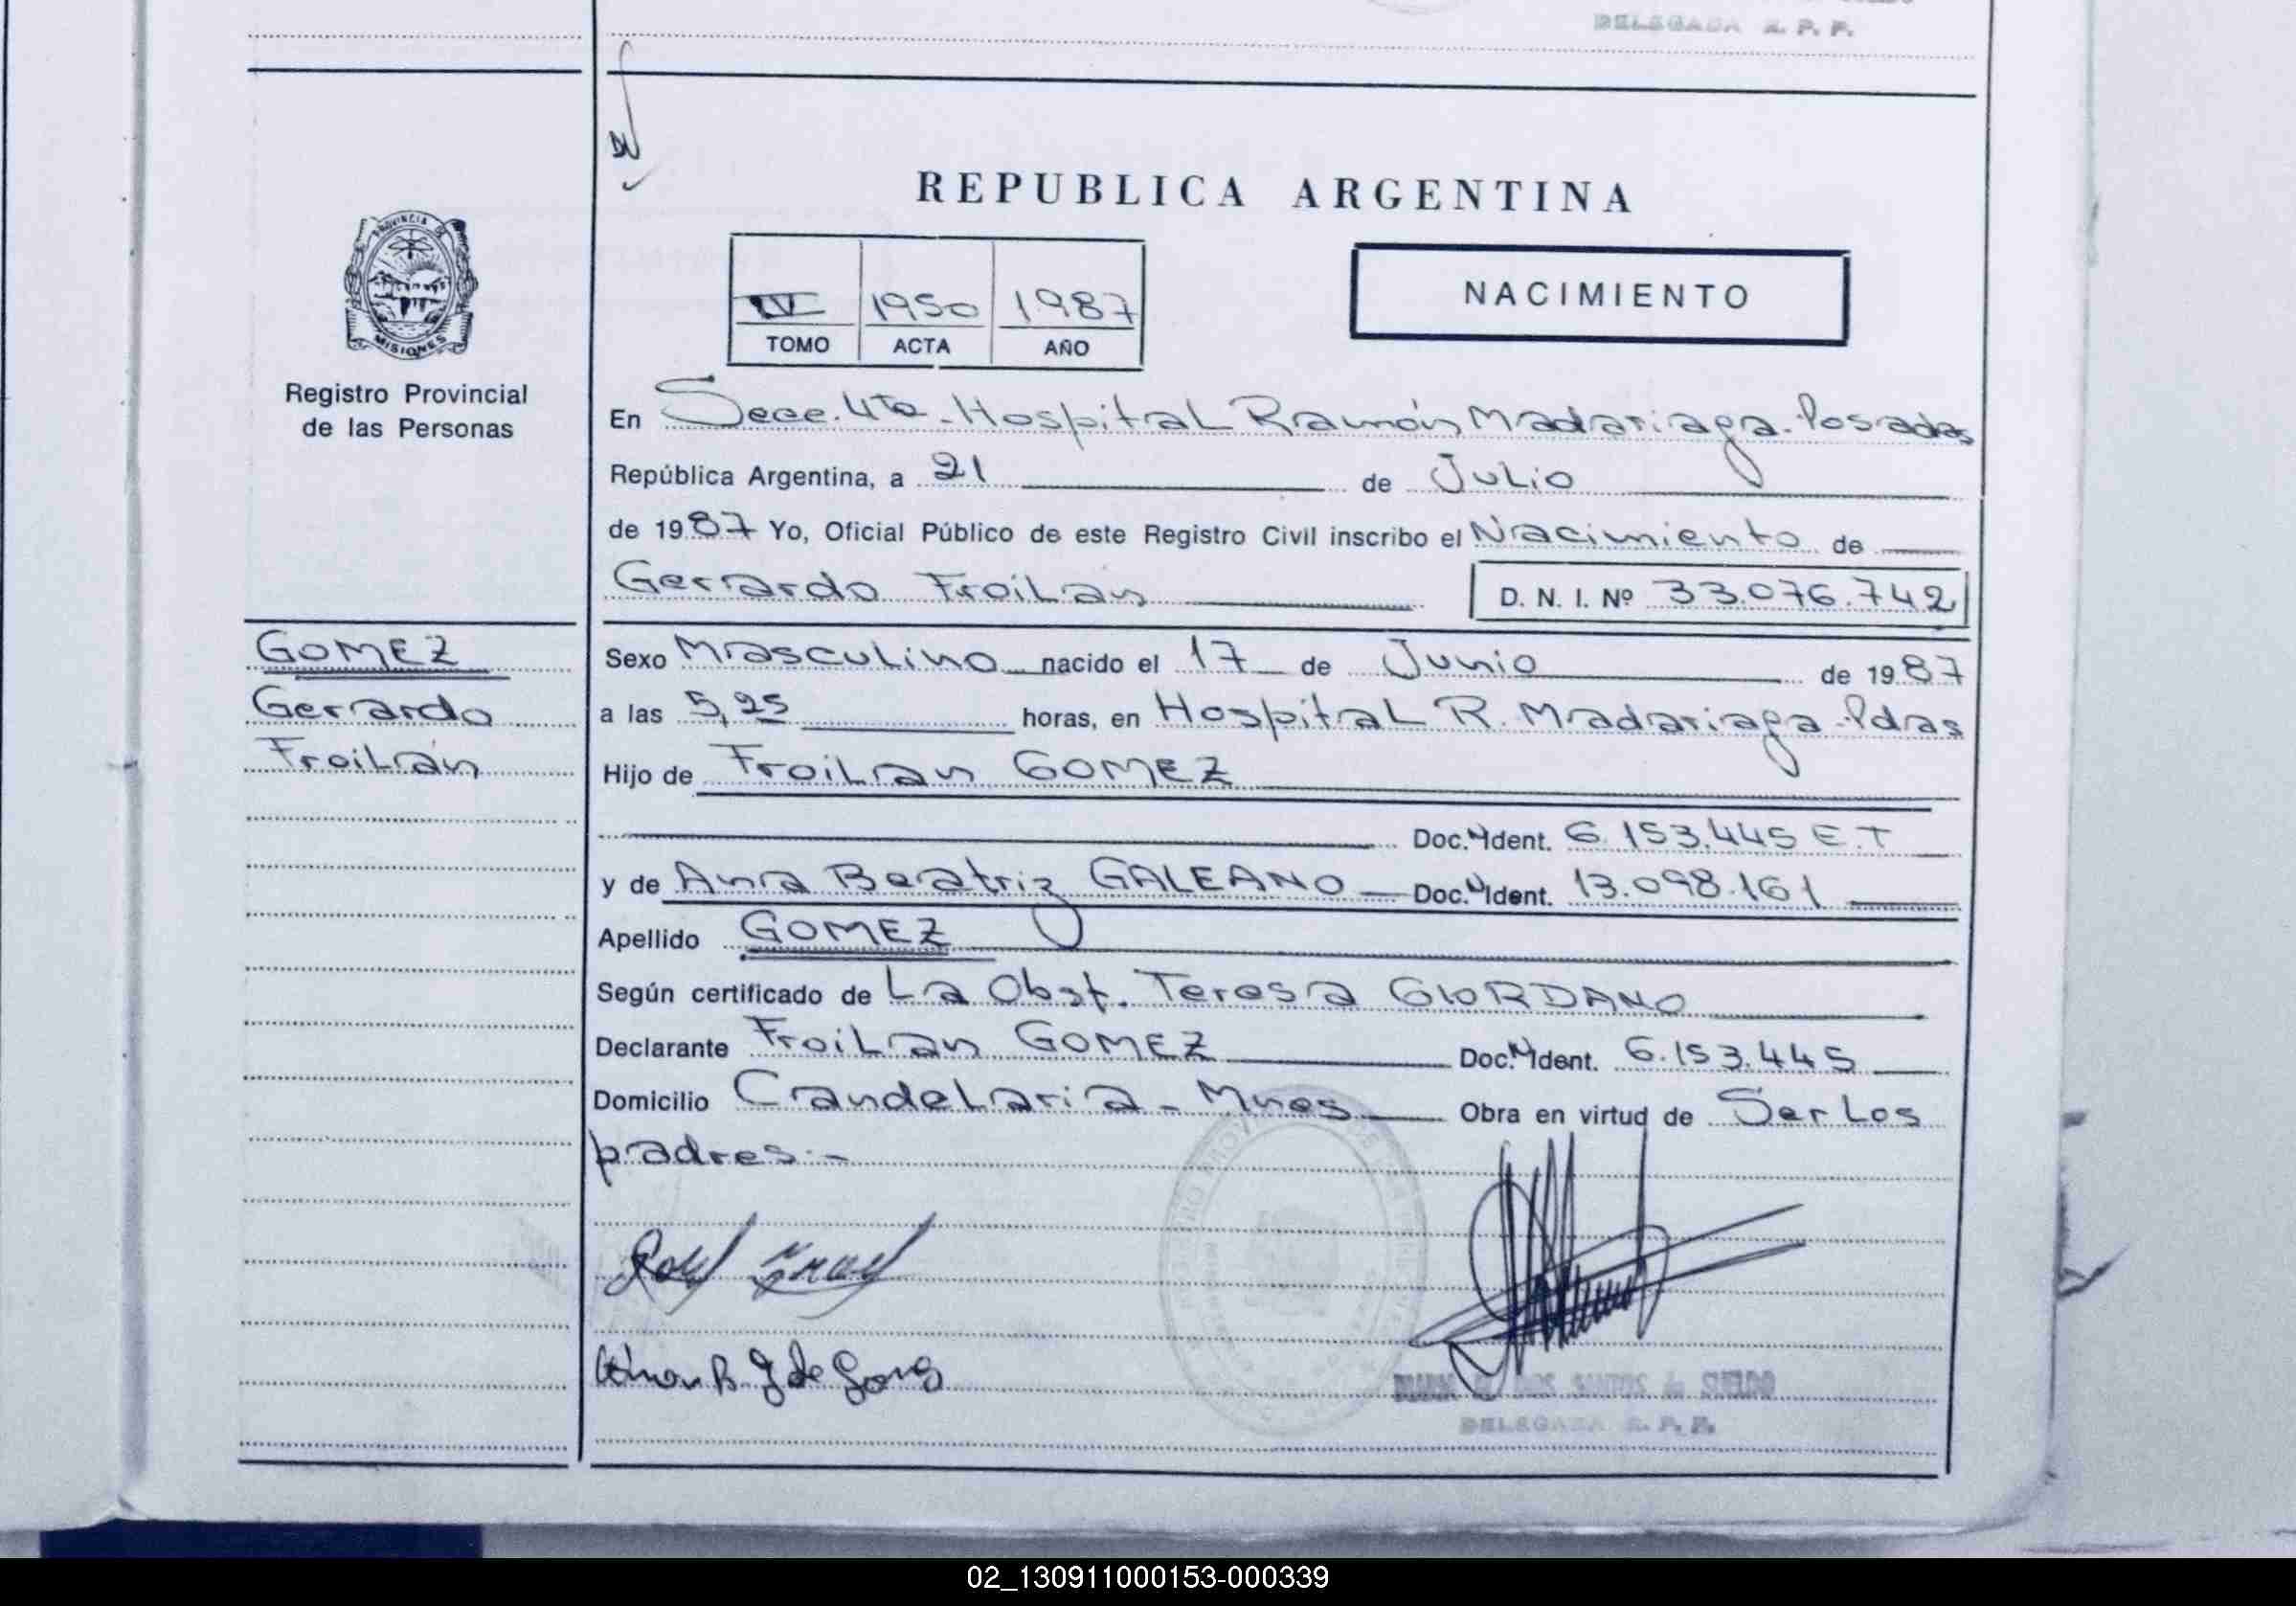 DELEGADA R. P. P.
REPUBLICA ARGENTINA
PROVINCIA DE
MISIONES
Registro Provincial
de las Personas
IV 1950 1987
TOMO ACTA AÑO
NACIMIENTO
En Secc. 4ta. Hospital Ramón Madariaga. Posadas
República Argentina, a 21 de Julio
de 1987 Yo, Oficial Público de este Registro Civil inscribo el Nacimiento de
Gerardo Froilan D. N. I. Nº 33.076.742
GOMEZ
Gerardo
Froilán
Sexo Masculino nacido el 17 de Junio de 1987
a las 5,25 horas, en Hospital R. Madariaga Pdas
Hijo de Froilan GOMEZ
Doc. Ident. 6.153.445 E.T
y de Ana Beatriz GALEANO Doc. Ident. 13.098.161
Apellido GOMEZ
Según certificado de La Obst. Teresa GIORDANO
Declarante Froilan GOMEZ Doc. Ident. 6.153.445
Domicilio Candelaria - Mnes Obra en virtud de Ser Los
padres.-
DOS SANTOS de SUELDO
DELEGADA R. P. P.
02_130911000153-000339